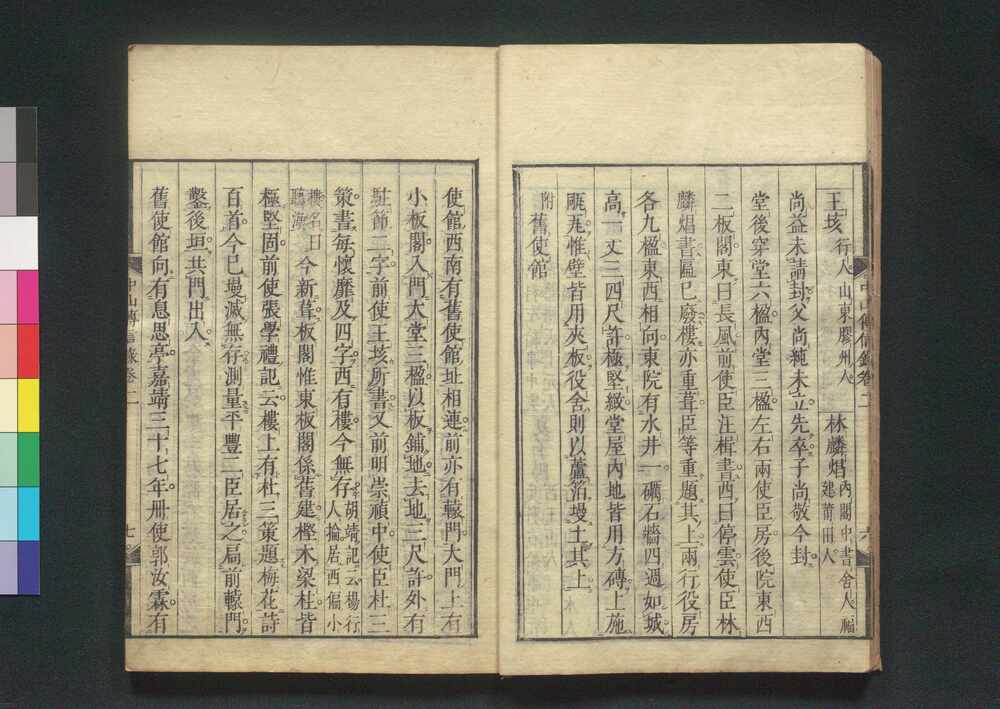 王垓 行人山東膠州人 林麟焻 內閣中書舍人福建莆田人
尚益未請封父尚純未立先卒子尚敬今封
堂後穿堂六楹內堂三楹左右兩使臣房後院東西
二板閣東曰長風前使臣汪楫書西曰停雲使臣林
麟焻書匾已廢樓亦重葺臣等重題其上兩行役房
各九楹東西相向東院有水井一礪石牆四週如城
高一丈三四尺許極堅緻堂屋內地皆用方磚上施
瓦惟壁皆用夾板役舍則以蘆箔墁土其上
附舊使館
中山傳信錄卷二 六
使館西南有舊使館址相連前亦有轅門大門上有
小板閣入門大堂三楹以板鋪地去地三尺許外有
駐節二字前使王垓所書又前明崇禎中使臣杜三
策書每懷靡及四字西有樓今無存胡靖記云楊行人掄居西偏小
樓名曰聽海 今新葺板閣惟東板閣係舊建樫木梁柱皆
極堅固前使張學禮記云樓上有杜三策題梅花詩
百首今已墁滅無存測量平豐二臣居之扃前轅門
鑿後垣共門出入
舊使館向有息思亭嘉靖三十七年冊使郭汝霖有
中山傳信錄卷二 七